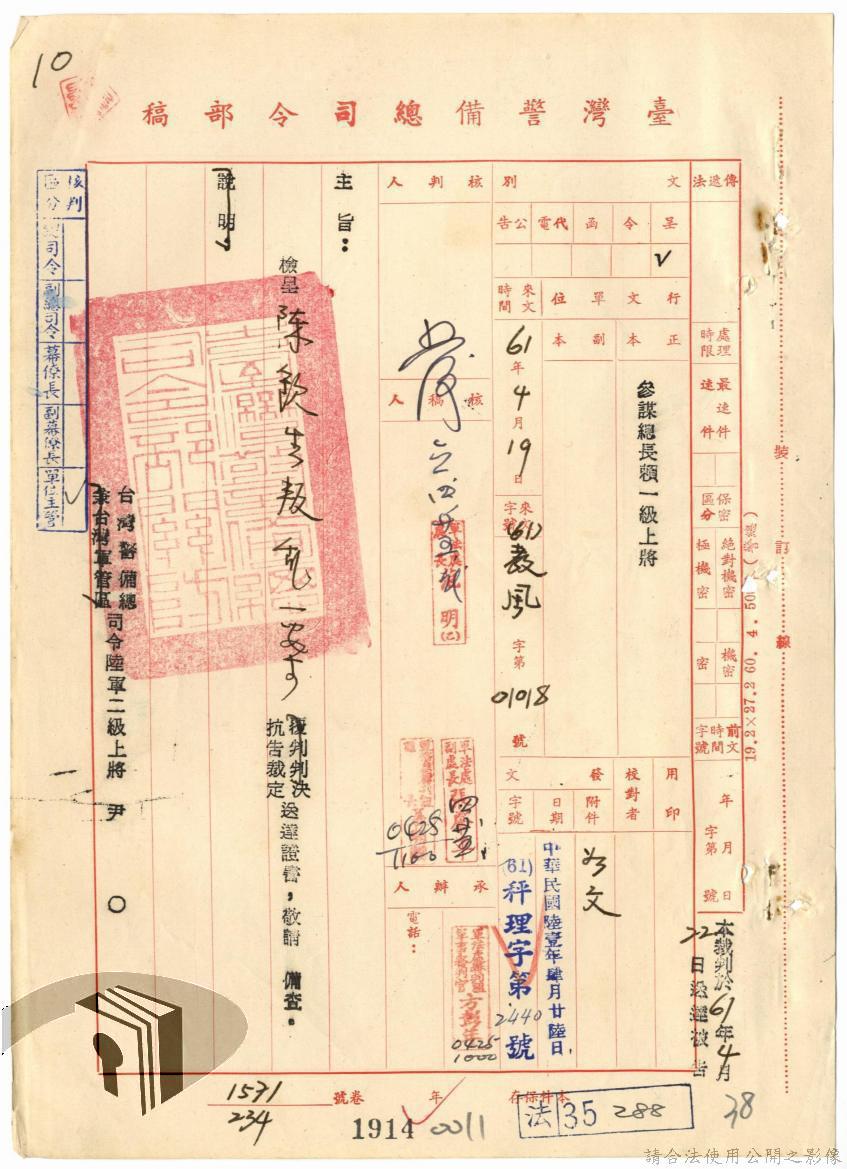 10
臺灣警備總司令部稿
傳遞法
處理時限
最速件
速件
保密區分
絕對機密
極機密
機密
密
前文時間字號
年月日
字第號
本裁判於61年4月
22日送達被告
文別
呈
令
函
代電
公告
✓
行文單位
正本
副本
參謀總長賴一級上將
來文時間
61年4月19日
來文字號
(61)
字第
01018
號
用印
校對者
發文
附件
日期
字號
如文
中華民國陸壹年肆月廿陸日
(61)秤理字第2440號
核判人
核稿人
軍法處副處長
0428
1100
承辦人
電話：
方彭年
0425
1000
主旨：
檢呈陳欽生叛亂一案
覆判判決
抗告裁定
送達證書，敬請 備查。
說明：
台灣警備總
兼台灣軍管區
司令陸軍二級上將 尹 〇
核判區分
總司令
副總司令
幕僚長
副幕僚長
單位主管
✓
裝訂線
19.2×27.2 60. 4. 50
本件保存 年
卷號
1571
234
1914
0011
法 35 288
38
請合法使用公開之影像